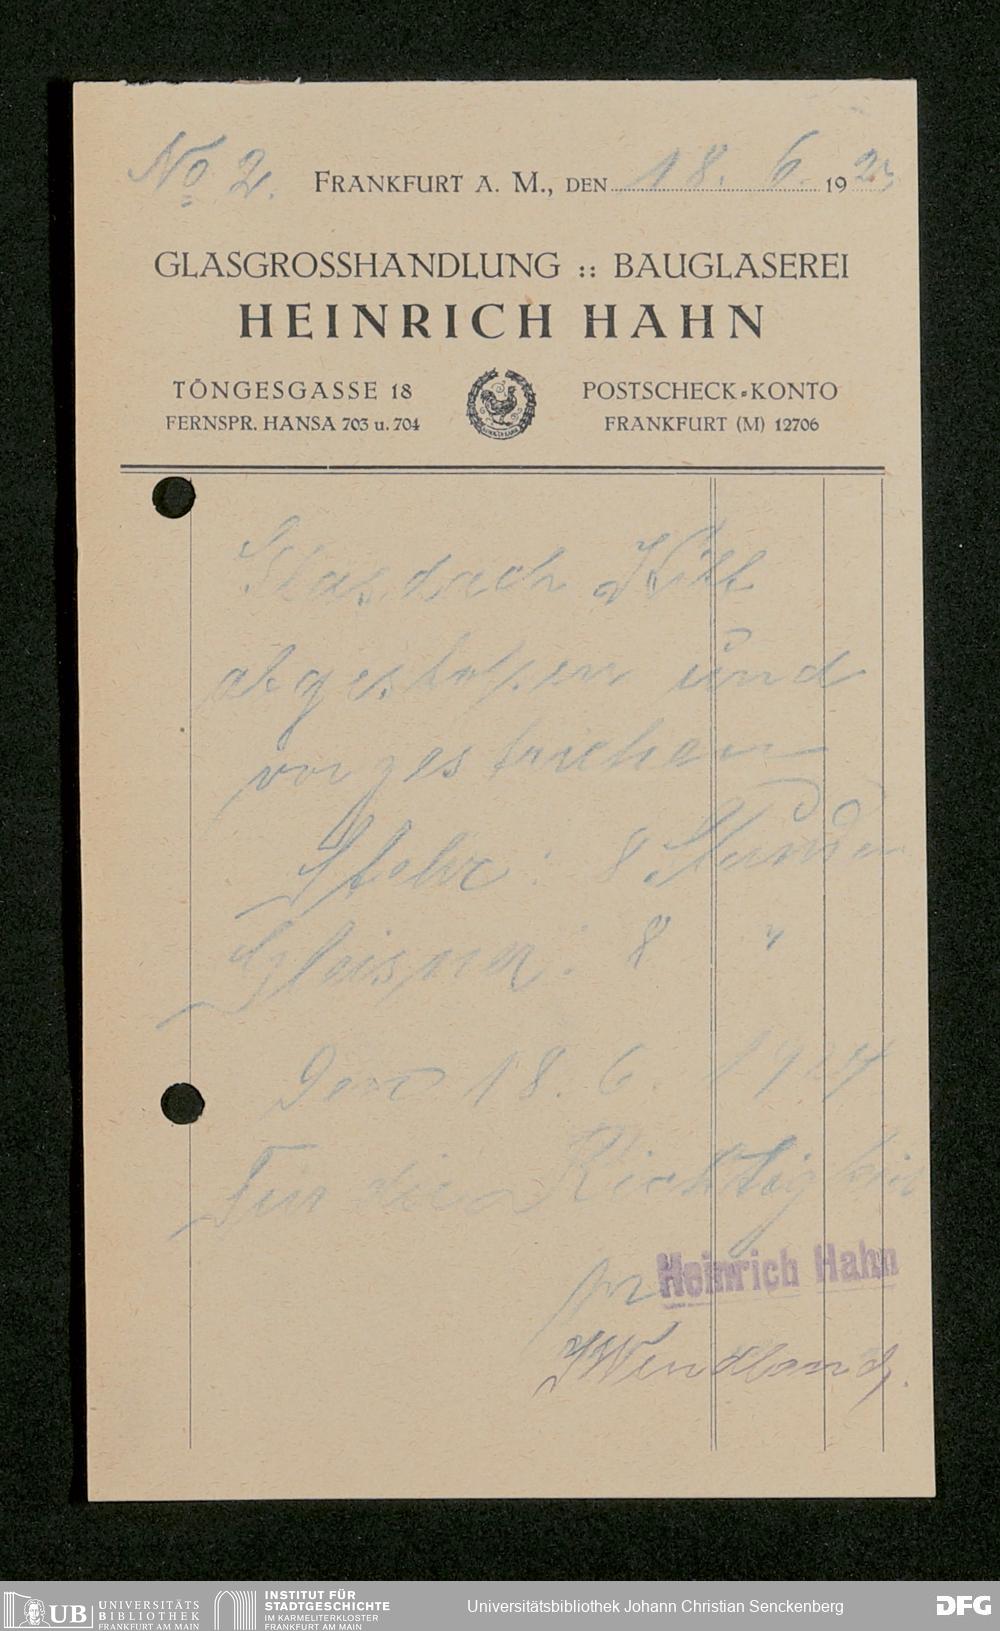 No 2. FRANKFURT A. M., DEN 18. 6. 192
GLASGROSSHANDLUNG :: BAUGLASEREI
HEINRICH HAHN
TÖNGESGASSE 18
FERNSPR. HANSA 703 u. 704
POSTSCHECK-KONTO
FRANKFURT (M) 12706
Glasdach Kitt
abgestoßen und
vorgestrichen
Stehr: 8 Stunden
Gleisner: 8 "
Den 18. 6. 1924
Für die Richtigkeit
pr Heinrich Hahn
Wendland.
UB UNIVERSITÄTS
BIBLIOTHEK
FRANKFURT AM MAIN
INSTITUT FÜR
STADTGESCHICHTE
IM KARMELITERKLOSTER
FRANKFURT AM MAIN
Universitätsbibliothek Johann Christian Senckenberg
DFG